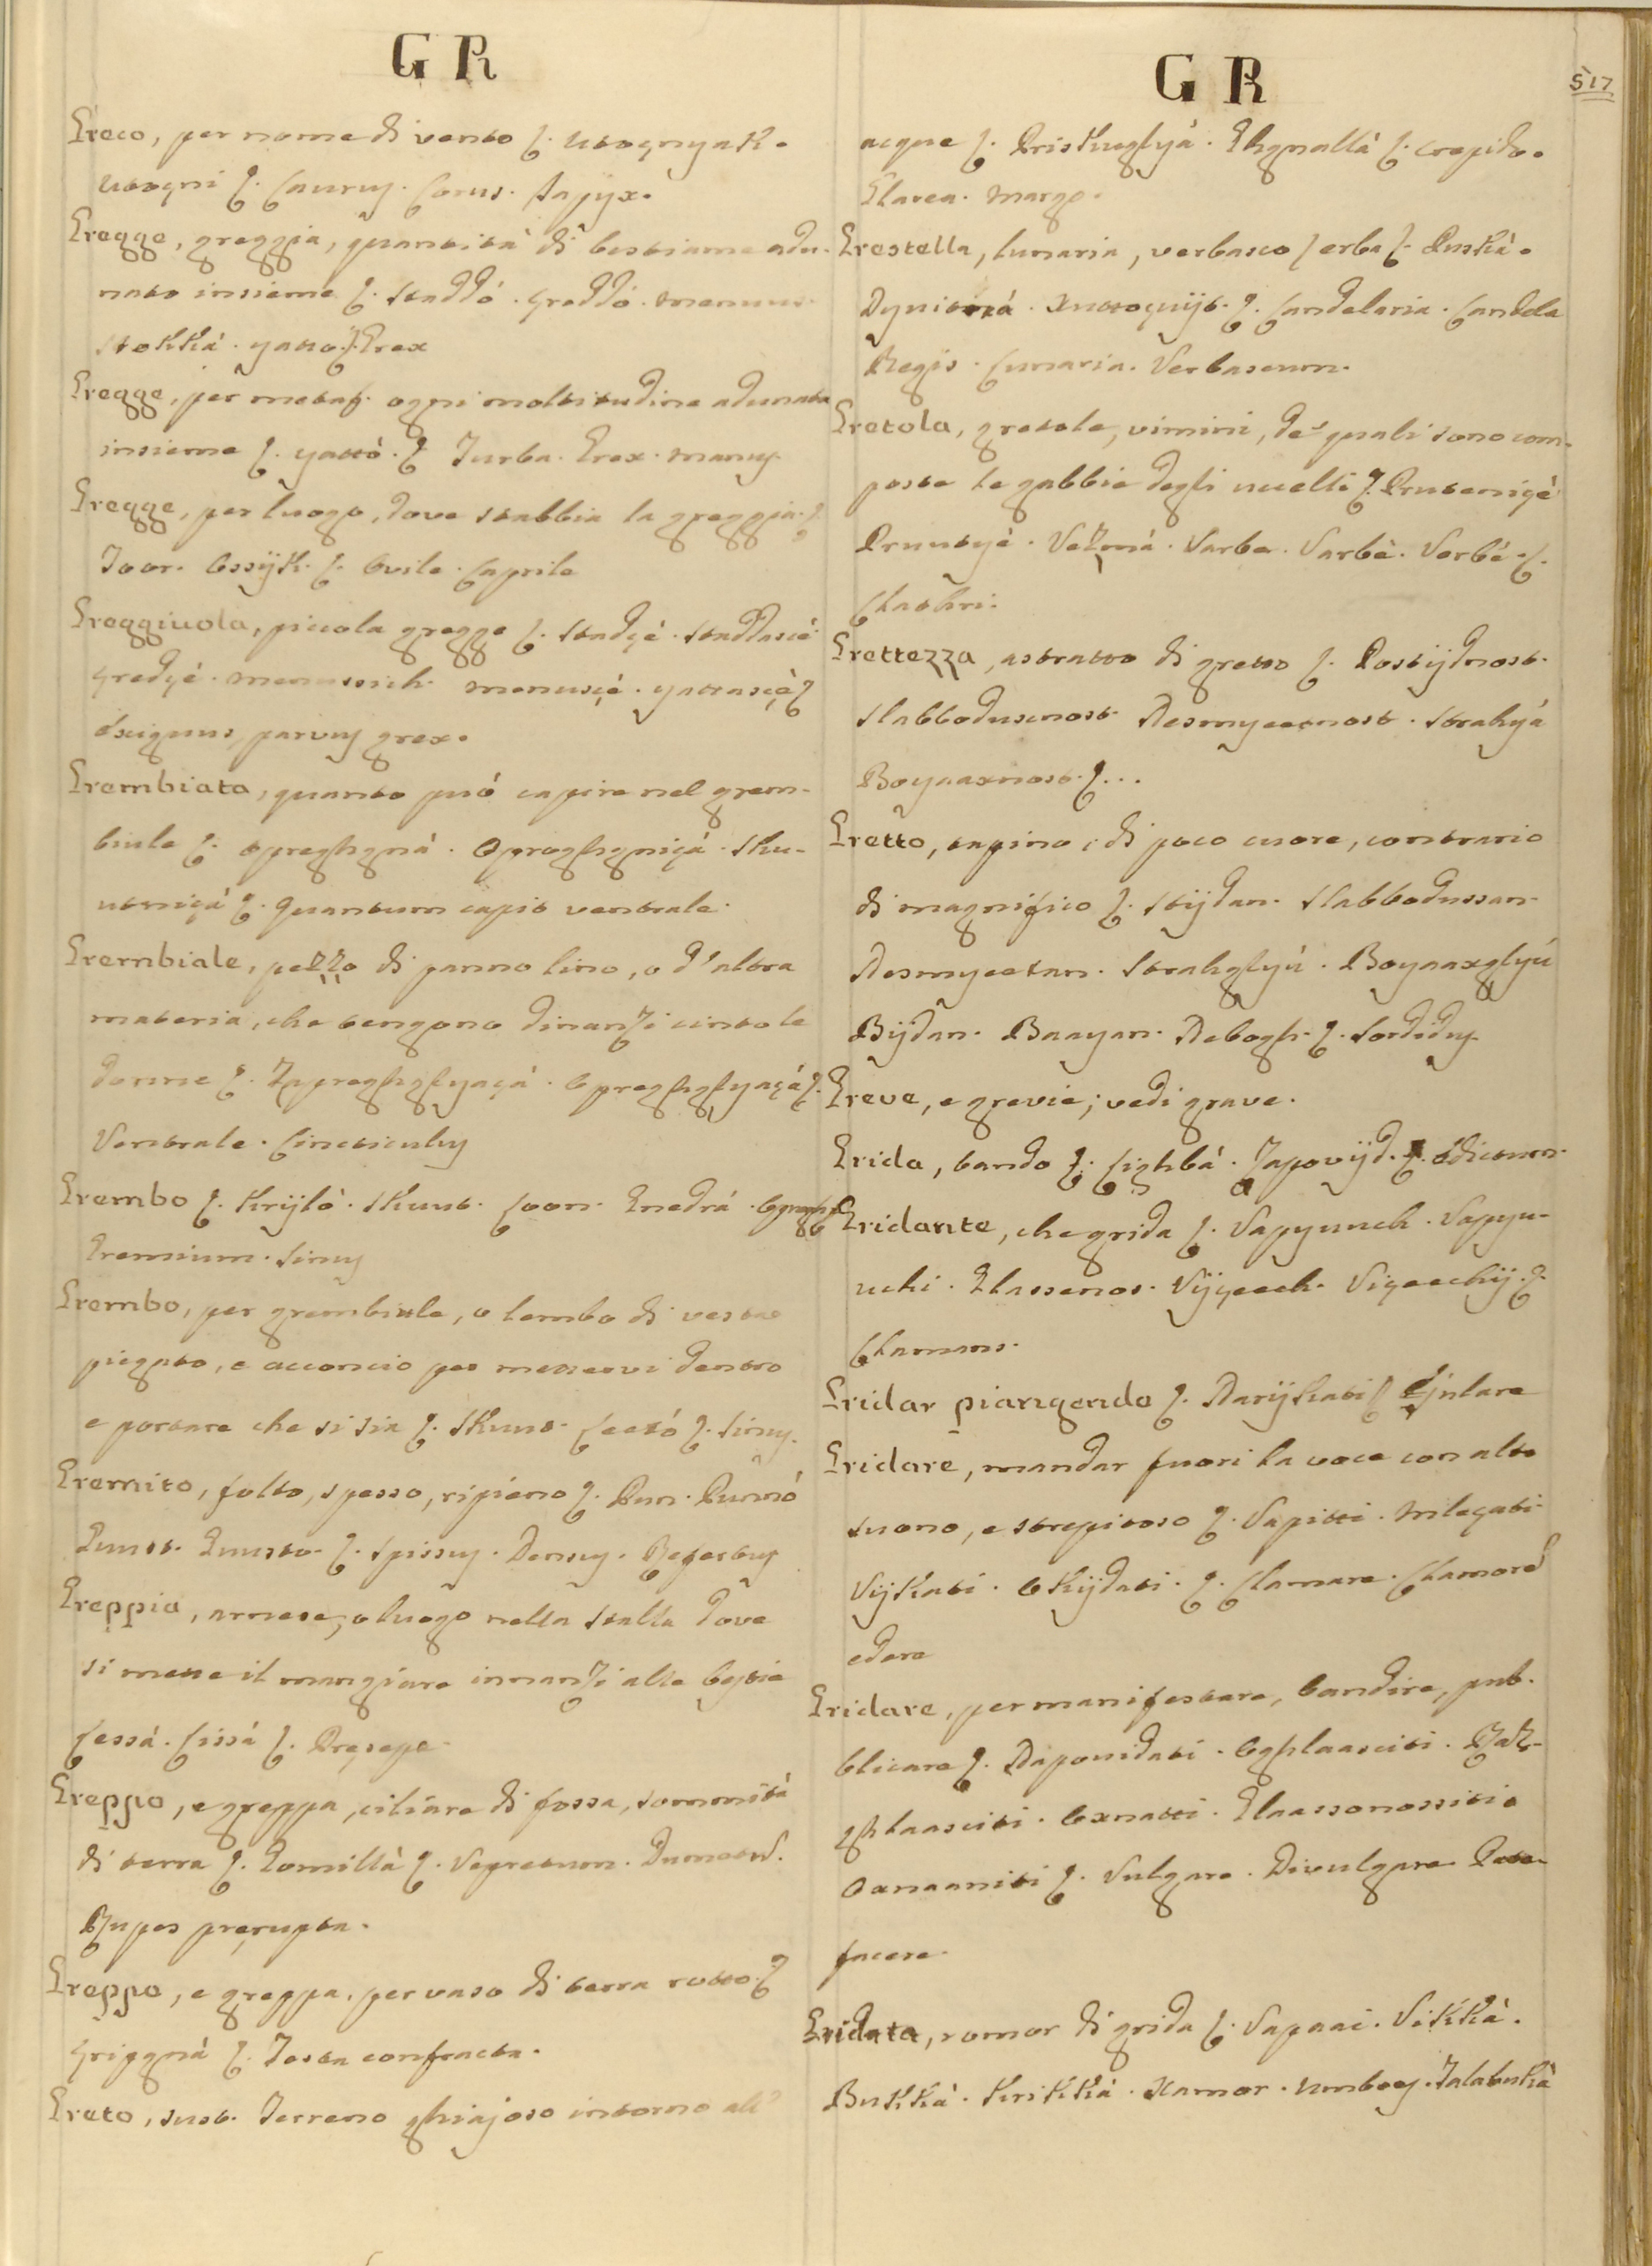 GR
Greco, per nome di vento ſ. Utognyak.
Utogni ſ. Caurus. Corus. Iapyx.
Gregge, greggia, quantità di bestiame adu-
nato insieme ſ. Staddó. Greddó.
Stokká. yatto ſ. Grex
Gregge, per metaf. ogni moltitudine adunata
insieme ſ. yattó. ſ Turba. Grex. manus.
Gregge, per luogo, dove stabbia la greggia. ſ.
Toor. Ossijk. ſ. Ovile. Caprile
Greggiuola, piccola gregge ſ. Stadçé. Staddascé
Gredçé. menussich. menusçé. yattasçé ſ
Exiguus, parvus grex.
Grembiata, quanto puó capire nel grem-
biule ſ. opreghgná. Opreghgniçá. Sku-
utniçá ſ. Quantum capit ventrale.
Grembiale, pezzo di panno lino, o d'altra
materia, che tengono dinanzi cinto le
donne ſ. Zapreghglyaçá. Opreghglyaçá ſ.
Ventrale. Cincticulus
Grembo ſ. Krijló. Skuut. Coon. Gnedrá.
Gremium. Sinus
Grembo, per grembiule, o lembo di veste
piegato, e acconcio per mettervi dentro
e portare che si sia ſ. Skuut. ſ. Sinus.
Gremito, folto, spesso, ripieno ſ. Pun. Punnó
Guust. Guusto. ſ. Spissus. Densus. Refertus
Greppia, arnese, o luogo nella stalla dove
si mette il mangiare innanzi alle bestie
Cessá. Cissá ſ. Pręsepe.
Greppo, e greppa, ciliare di fossa, sommità
di terra ſ. Gomillà ſ. Vepretum. Dumetum.
Rupes pręrupta.
Greppo, e greppa, per vaso di terra rotto. ſ
Grigghá ſ. Testa confracta.
Greto, sust. Terreno ghiajoso intorno all'
GR
517
acque ſ. Pristuuglyá. Ghgnallá ſ. crepido.
Glarea. Margo.
Grestella, lunaria, verbasco ſ erba ſ. Puská.
ſ. Candelaria. Candela
Regis. Lunaria. Verbascum.
Gretola, gretole, vimini, de' quali sono com-
poste le gabbie degli uccelli ſ. Pruteniçé
Pruutyé. Vezmá. Varbe. Varbé. Verbé. ſ.
Clathri.
Grettezza, astratto di gretto ſ. Postijdnost.
Slabboduscnost. Nesmyeetnost. Strahyá
Boyaaxnost. ſ...
Gretto, tapino, di poco cuore, contrario
di magnifico ſ. Stijdan. Slabbodussan.
Nesmyeetan. Strahglyú. Boyaaxglyú
Bijdan. Baayan. Nebogh. ſ. Sordidus.
Greve, e grevie; vedi grave.
Grida, bando ſ. Cighbá. Zapovijd. ſ. Edictum.
Gridante, che grida ſ. Vapyuuch. Vapyu-
uchi. Glassenos. Vijçeech. Viçeechij. ſ.
Clamans.
Gridar piangendo ſ. Narijkati ſ Ejulare
Gridare, mandar fuori la voce con alto
suono, e strepitoso ſ. Vapitti. Mleçati.
Vijkati. Okijdati. ſ. Clamare. Clamorem
edere
Gridare, per manifestare, bandire, pub-
blicare ſ. Napouidati. Oghlaasciti. Raz-
ghlaasciti. Oxnatti. Glaassonossiti.
Oznaaniti ſ. Vulgare. Divulgare. Pate-
facere.
Gridata, romor di grida ſ. Vapaai. Vikká.
Bukká. Krikká. Xamor. Umboy. Talabuká